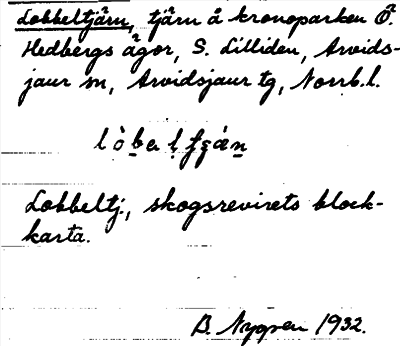 Lobbeltjärn, tjärn å kronoparken Ö.
Hedbergs ägor, S. Lilliden, Arvids-
jaur sn, Arvidsjaur tg, Norrb. l.
Lobbeltj., skogsrevirets block-
karta.
B. Nygren 1932.